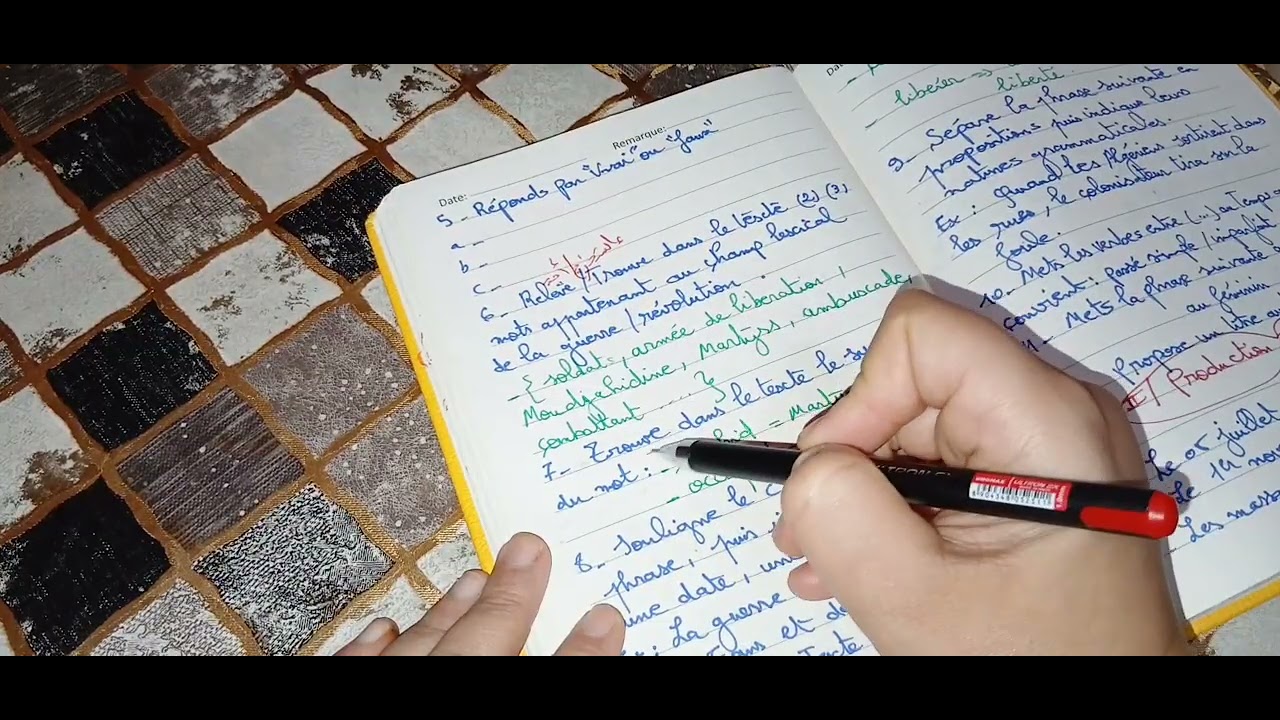 Remarque:
Date:
5- Réponds par "Vrai" ou "faux"
a -
b -
c -
6- Relève / Trouve dans le texte (2) (3)
mots appartenant au champ lexical
de la guerre / révolution :
- { soldats, armée de libération,
Moudjahidine, Martyss, ambuscade,
combattant ..... }
7- Trouve dans le texte le
du mot : - = marty
-
8- Souligne le
phrase, puis
une date, un
: La guerre
ans et de
texte
Da
libérer => liberté.
9- Sépare la phrase suivante en
propositions puis indique leurs
natures grammaticales.
Ex : Quand les Algériens sortirent dans
les rues, le colonisateur tira sur la
foule.
10- Mets les verbes entre (...) au temps
convient : passé simple / imparfait
11- Mets la phrase suivante
au féminin
Propose un titre au
II/ Production
Le 05 juillet
Le 1er nov
- Les massa
ULTRON EX